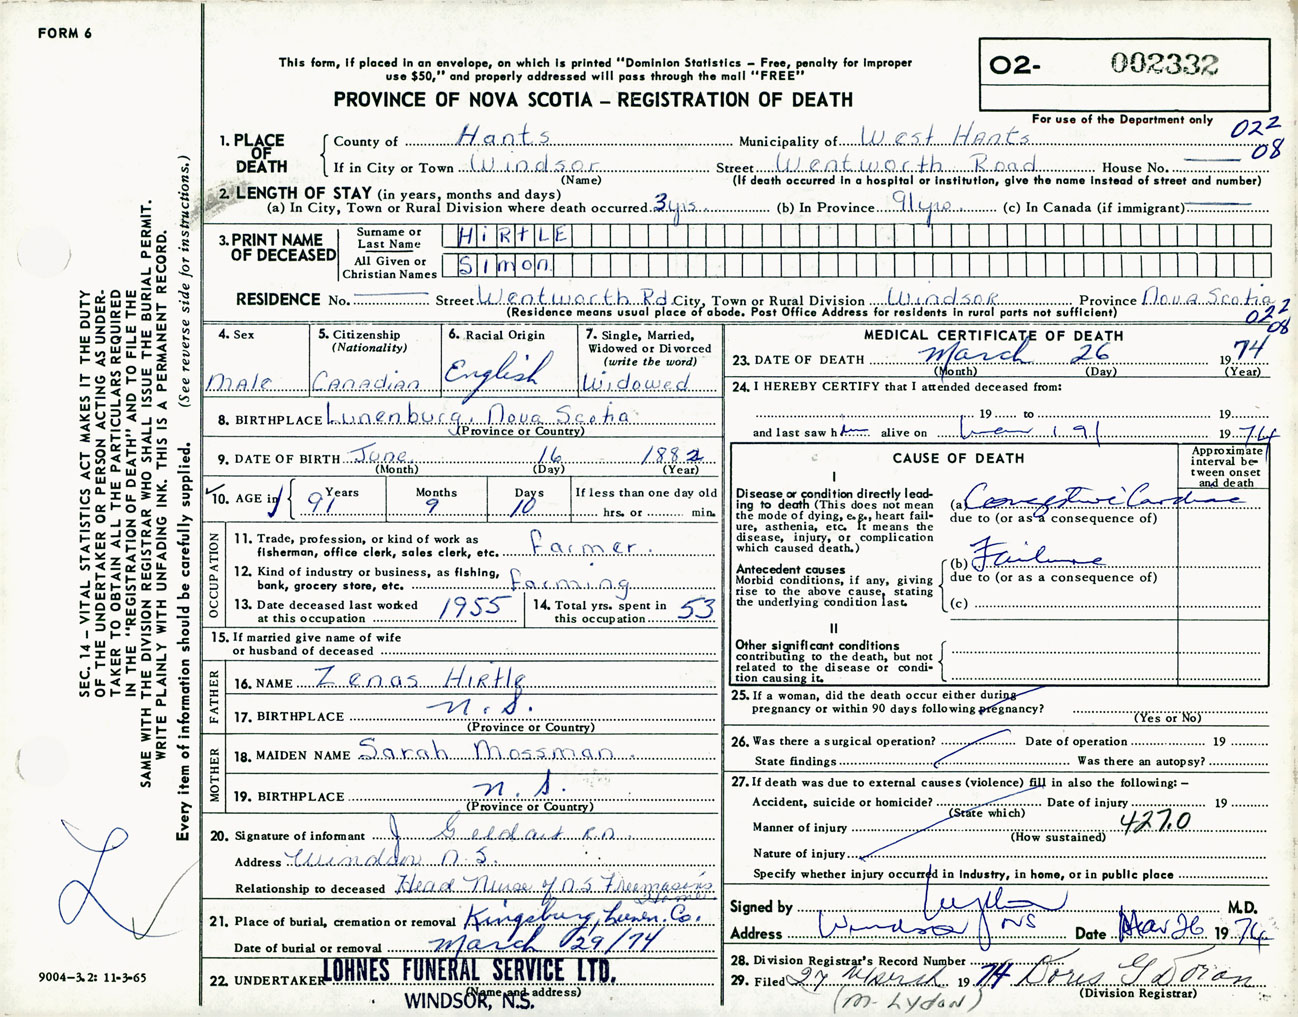 FORM 6
This form, if placed in an envelope, on which is printed "Dominion Statistics – Free, penalty for improper
use $50," and properly addressed will pass through the mail "FREE"
PROVINCE OF NOVA SCOTIA – REGISTRATION OF DEATH
02- 002332
For use of the Department only
022
08
1. PLACE OF DEATH County of Hants Municipality of West Hants
If in City or Town Windsor Street Wentworth Road House No.
(Name) (If death occurred in a hospital or institution, give the name instead of street and number)
2. LENGTH OF STAY (in years, months and days)
(a) In City, Town or Rural Division where death occurred 3 yrs. (b) In Province 91 yrs. (c) In Canada (if immigrant)
3. PRINT NAME OF DECEASED
Surname or Last Name HIRTLE
All Given or Christian Names Simon
RESIDENCE No. Street Wentworth Rd. City, Town or Rural Division Windsor Province Nova Scotia
(Residence means usual place of abode. Post Office Address for residents in rural parts not sufficient)
022
08
4. Sex Male
5. Citizenship (Nationality) Canadian
6. Racial Origin English
7. Single, Married, Widowed or Divorced (write the word) Widowed
8. BIRTHPLACE Lunenburg, Nova Scotia
(Province or Country)
9. DATE OF BIRTH June 16 1882
(Month) (Day) (Year)
10. AGE in Years 91 Months 9 Days 10 If less than one day old
hrs. or min.
OCCUPATION
11. Trade, profession, or kind of work as
fisherman, office clerk, sales clerk, etc. Farmer.
12. Kind of industry or business, as fishing,
bank, grocery store, etc. Farming
13. Date deceased last worked
at this occupation 1955
14. Total yrs. spent in
this occupation 53
15. If married give name of wife
or husband of deceased
FATHER
16. NAME Zenas Hirtle
17. BIRTHPLACE N.S.
(Province or Country)
MOTHER
18. MAIDEN NAME Sarah Mossman
19. BIRTHPLACE N.S.
(Province or Country)
20. Signature of informant J Geldart RN
Address Windsor N.S.
Relationship to deceased Head Nurse of N.S. Freemason's Home
21. Place of burial, cremation or removal Kingsburg, Lunen. Co.
Date of burial or removal March 29/74
22. UNDERTAKER LOHNES FUNERAL SERVICE LTD.
(Name and address)
WINDSOR, N.S.
MEDICAL CERTIFICATE OF DEATH
23. DATE OF DEATH March 26 1974
(Month) (Day) (Year)
24. I HEREBY CERTIFY that I attended deceased from:
19 to 19
and last saw him alive on 1974
CAUSE OF DEATH
Approximate interval between onset and death
I
Disease or condition directly leading to death (This does not
mean the mode of dying, e.g., heart failure, asthenia, etc. It means the
disease, injury, or complication
which caused death.)
(a) Congestive Cardiac
due to (or as a consequence of)
Antecedent causes
Morbid conditions, if any, giving
rise to the above cause, stating
the underlying condition last.
(b) Failure
due to (or as a consequence of)
(c)
II
Other significant conditions
contributing to the death, but not
related to the disease or condition causing it.
25. If a woman, did the death occur either during
pregnancy or within 90 days following pregnancy?
(Yes or No)
26. Was there a surgical operation? Date of operation 19
State findings Was there an autopsy?
27. If death was due to external causes (violence) fill in also the following: –
Accident, suicide or homicide? Date of injury 19
(State which)
Manner of injury 427.0
(How sustained)
Nature of injury
Specify whether injury occurred in industry, in home, or in public place
Signed by M.D.
Address Windsor NS Date Mar 26 1974
28. Division Registrar's Record Number
29. Filed 27 March 1974 Doris G Doran
(Division Registrar)
(M. LYDON)
SEC. 14 – VITAL STATISTICS ACT MAKES IT THE DUTY
OF THE UNDERTAKER OR PERSON ACTING AS UNDER-
TAKER TO OBTAIN ALL THE PARTICULARS REQUIRED
IN THE "REGISTRATION OF DEATH" AND TO FILE THE
SAME WITH THE DIVISION REGISTRAR WHO SHALL ISSUE THE BURIAL PERMIT.
WRITE PLAINLY WITH UNFADING INK. THIS IS A PERMANENT RECORD.
Every item of information should be carefully supplied. (See reverse side for instructions.)
9004-3.2: 11-3-65